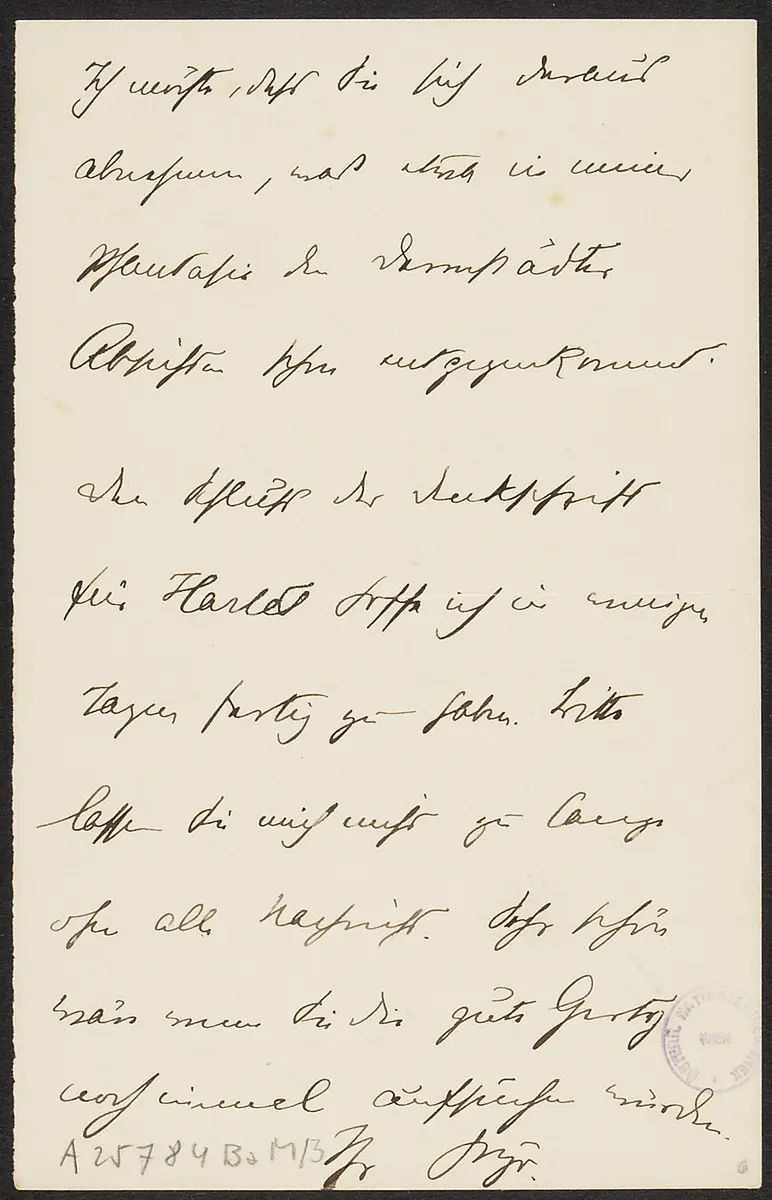 Ich möchte, dass Sie sich daraus
abnehmen, was in meiner
Phantasie den Darmstädter
Absichten schon entgegenkommt.
Den Schluss der Denkschrift
für hoffe ich in wenigen
Tagen fertig zu haben. Bitte
lassen Sie mich nicht zu lange
ohne alle Nachricht. Sehr schön
wär's wenn Sie die gute
noch einmal aufsuchen würden.
Ihr
A 25784 Ba M/3